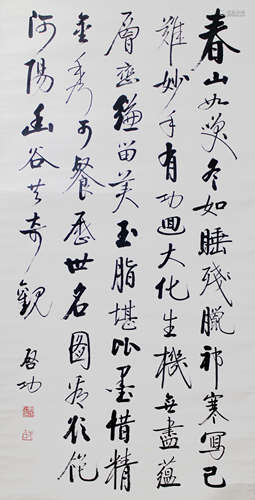 春山如笑冬如睡殘臘祁寒寫已
難妙手有功迴大化生機無盡蘊
層巒縑留美玉脂堪比墨惜精
金秀可餐歷世名圖
河陽幽谷共奇觀
啓功